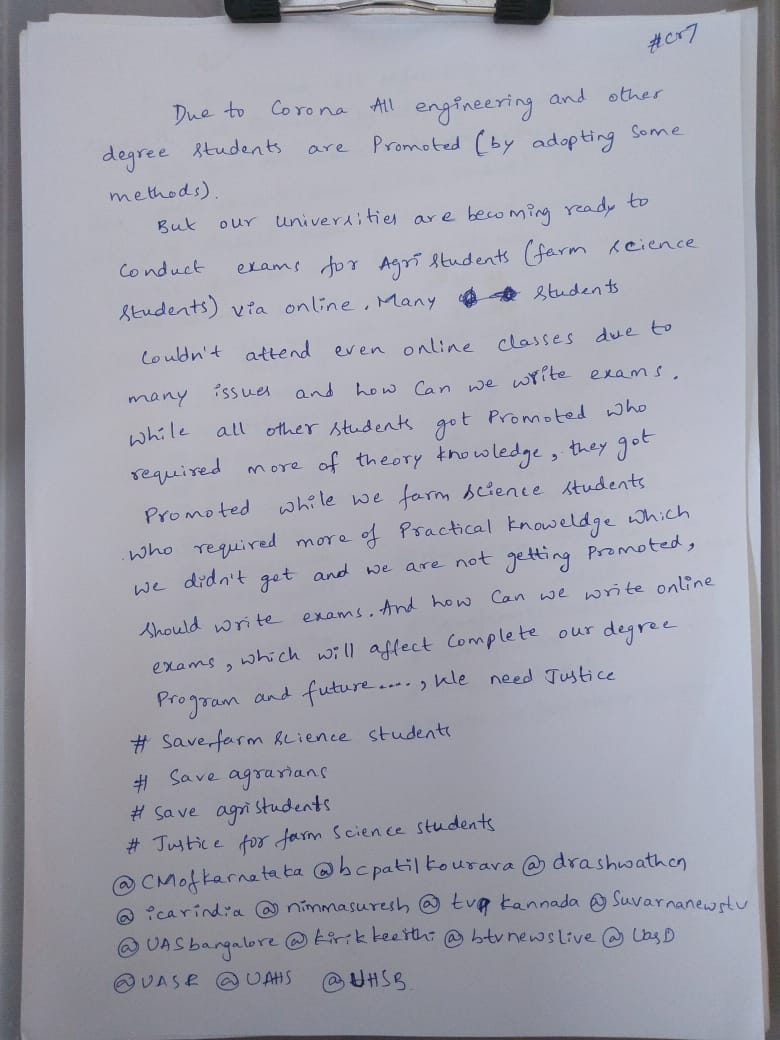 #cr7
Due to Corona All engineering and other
degree students are Promoted (by adopting Some
methods).
But our universities are becoming ready to
Conduct exams for Agri Students (farm science
Students) via online. Many students
Couldn't attend even online classes due to
many issues and how Can we write exams.
While all other students got Promoted who
required more of theory knowledge, they got
Promoted while we farm science students
who required more of Practical knoweldge which
we didn't get and we are not getting Promoted,
should write exams. And how can we write online
exams, which will affect Complete our degree
Program and future...., We need Justice
# Save farm science students
# Save agrarians
# Save agri students
# Justice for farm Science students
@CMofkarnataka @bcpatilkourava @drashwathcn
@icarindia @nimmasuresh @tv9 kannada @Suvarnanewstv
@UASbangalore @kirik keerthi @btvnewslive @UasD
@UASR @UAHS @UHSB